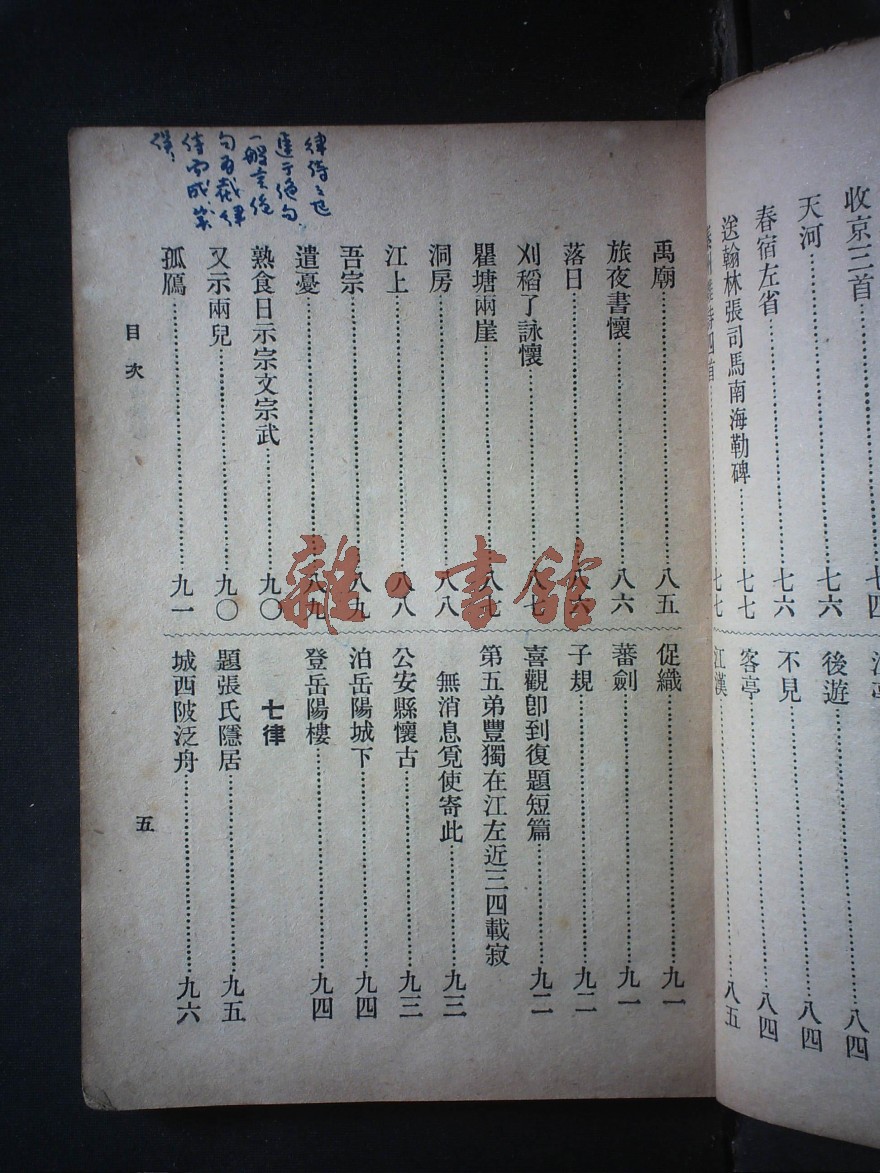 收京三首……七四
天河……七六
春宿左省……七六
送翰林張司馬南海勒碑……七七
四首……七七
後遊……八四
不見……八四
客亭……八四
江漢……八五
禹廟……八五
旅夜書懷……八六
落日……八六
刈稻了詠懷……八七
瞿塘兩崖……八七
洞房……八八
江上……八八
吾宗……八九
遣憂……八九
熟食日示宗文宗武……九〇
又示兩兒……九〇
孤鴈……九一
促織……九一
蕃劍……九一
子規……九二
喜觀卽到復題短篇……九二
第五弟豐獨在江左近三四載寂
無消息覓使寄此……九三
公安縣懷古……九三
泊岳陽城下……九四
登岳陽樓……九四
七律
題張氏隱居……九五
城西陂泛舟……九六
目次
五
律詩之起
遠于絕句
一般言絕
句為截律
詩而成
雜·書館